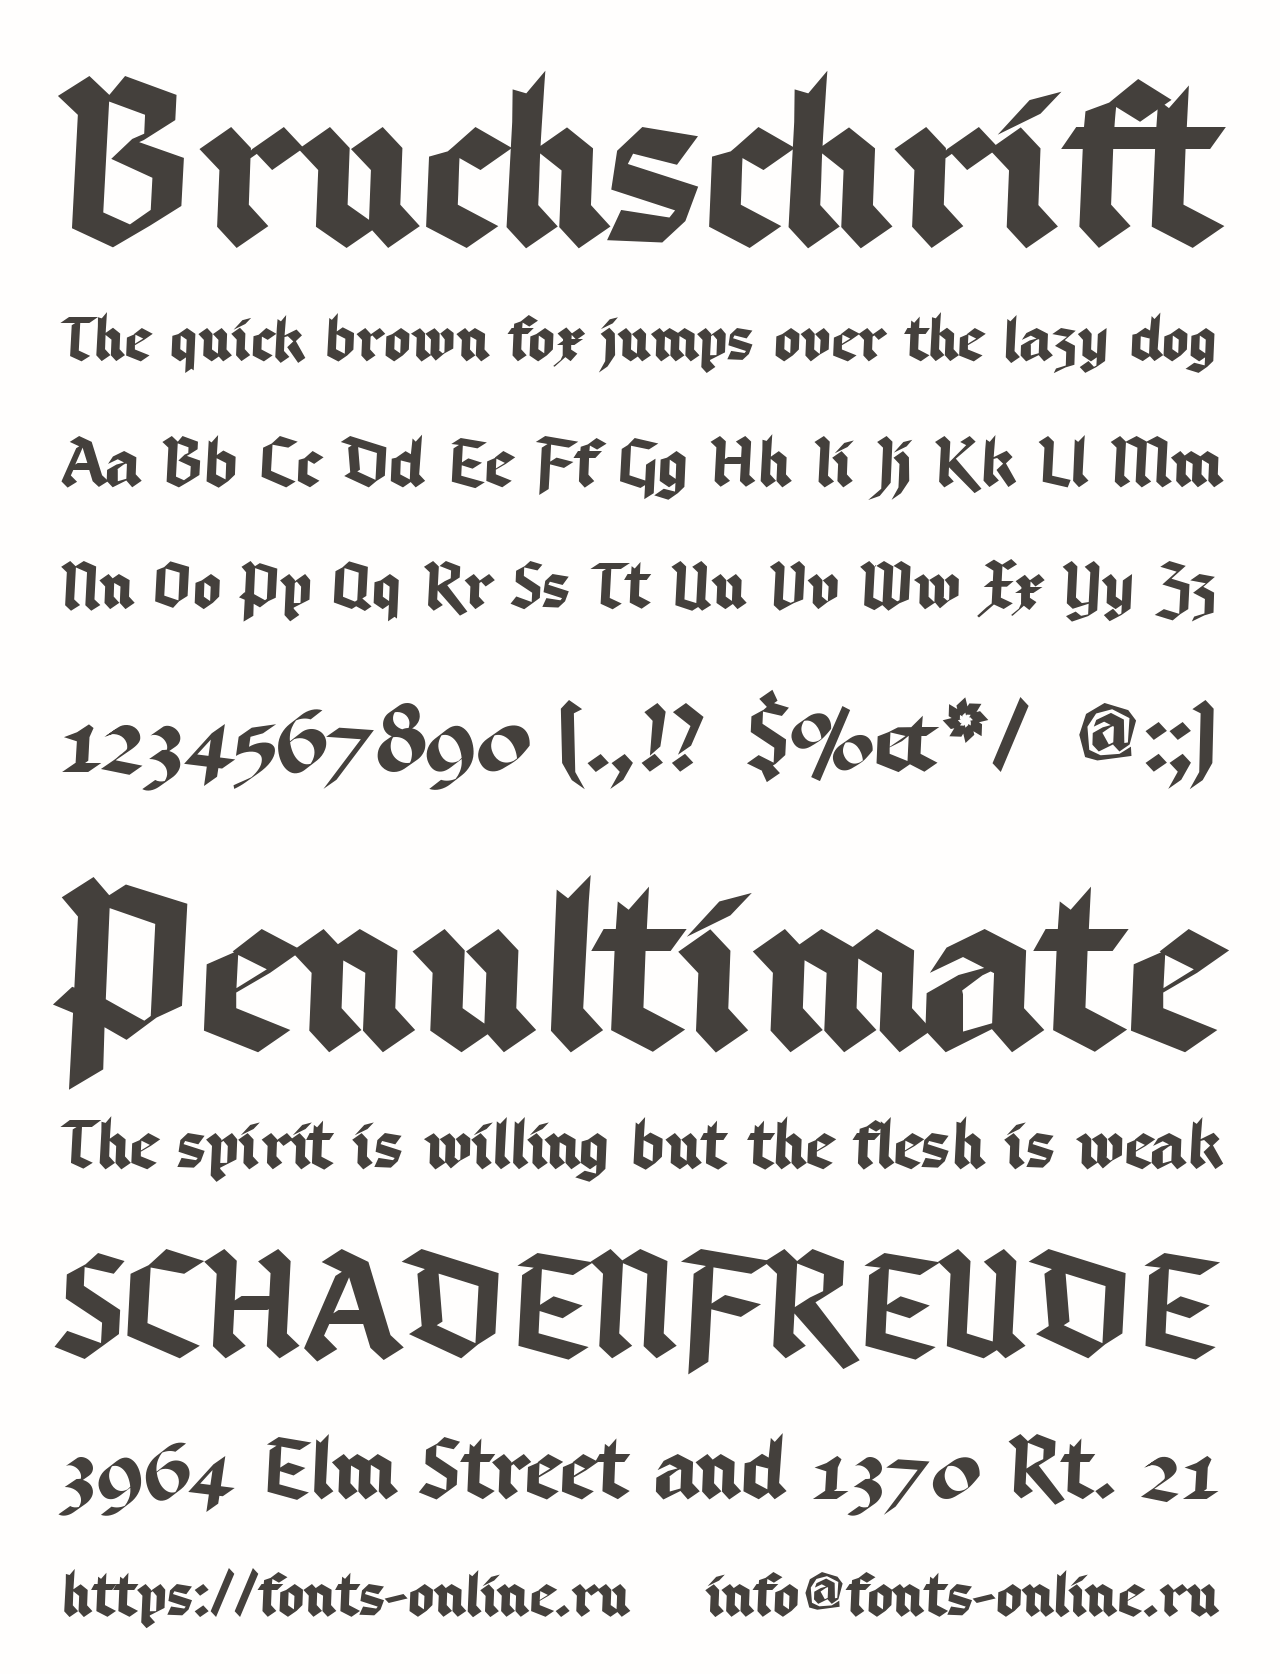 Bruchschrift
The quick brown fox jumps over the lazy dog
Aa Bb Cc Dd Ee Ff Gg Hh Ii Jj Kk Ll Mm
Nn Oo Pp Qq Rr Ss Tt Uu Vv Ww Xx Yy Zz
1234567890 (.,!? $%&*/ @:;)
Penultimate
The spirit is willing but the flesh is weak
SCHADENFREUDE
3964 Elm Street and 1370 Rt. 21
https://fonts-online.ru info@fonts-online.ru